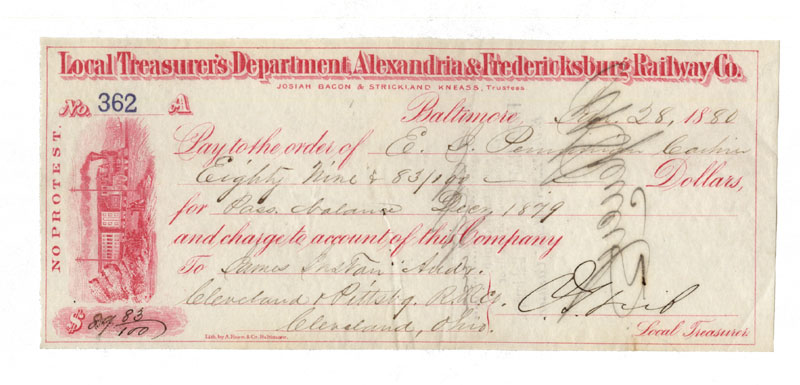 Local Treasurer's Department, Alexandria & Fredericksburg Railway Co.
JOSIAH BACON & STRICKLAND KNEASS, Trustees
No. 362 A
Baltimore 28, 1880
NO PROTEST.
Pay to the order of E. S. Cashier
Eighty Nine & 83/100 Dollars,
for Pass. balance Decr 1879
and charge to account of this Company
To James Audr.
Cleveland & Pittsbg. R.R. Co.
Cleveland, Ohio.
$ 89 83/100
Local Treasurer
Lith. by A. Hoen & Co. Baltimore.